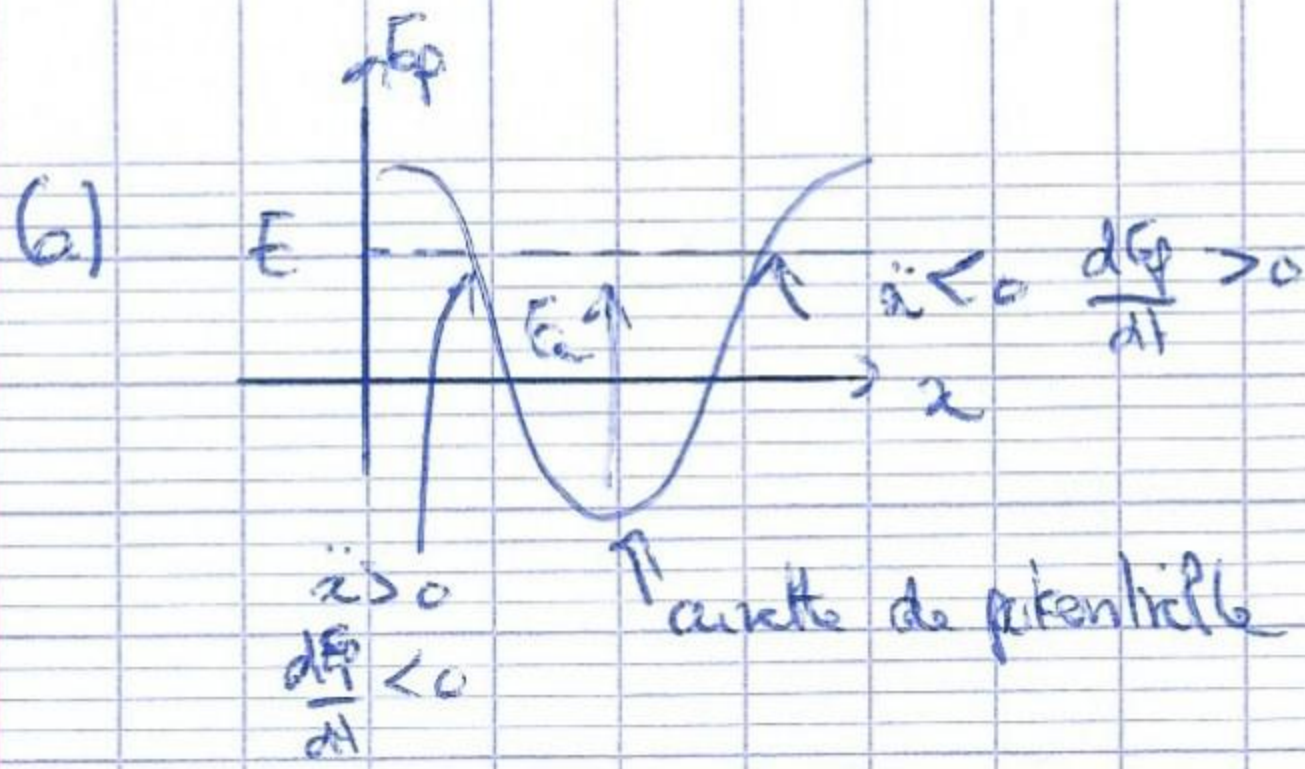 Ep
6)
E
Ec
ẍ < 0 dEp/dt > 0
x
ẍ > 0
dEp/dt < 0
cuvette de potentielle